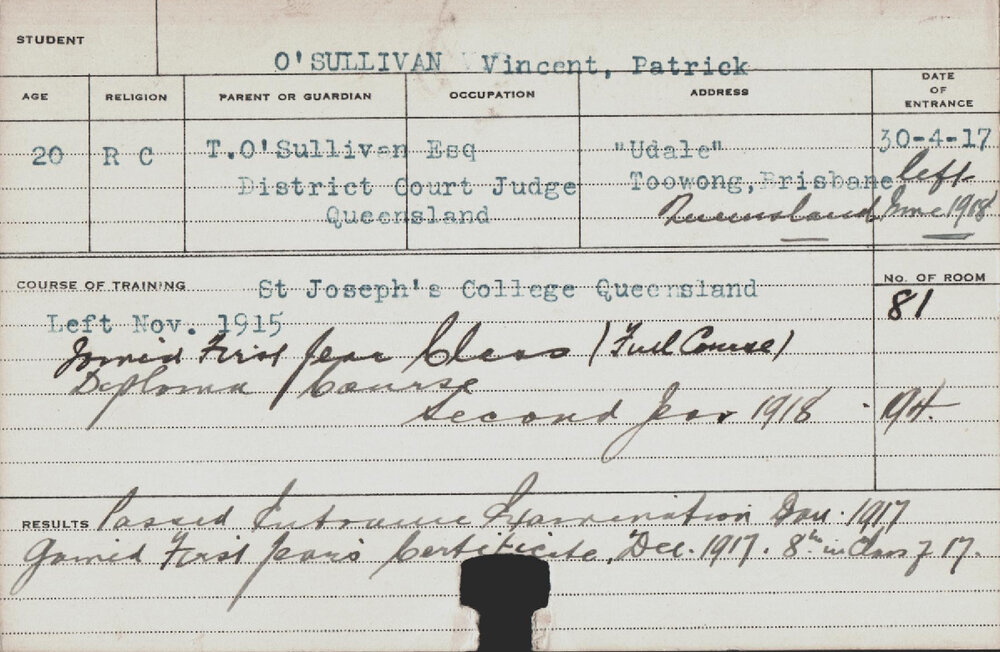 STUDENT
O'SULLIVAN Vincent, Patrick
AGE RELIGION PARENT OR GUARDIAN OCCUPATION ADDRESS DATE OF ENTRANCE
20 R C T.O'Sullivan Esq "Udale" 30-4-17
District Court Judge Toowong, Brisbane left
Queensland Queensland June 1918
COURSE OF TRAINING St Joseph's College Queensland No. OF ROOM
Left Nov. 1915 81
Joined First Year Class (Full Course)
Diploma Course
Second Year 1918 194.
RESULTS Passed Entrance Examination 1917
Gained First Year's Certificate, Dec. 1917. 8th in Class of 17.